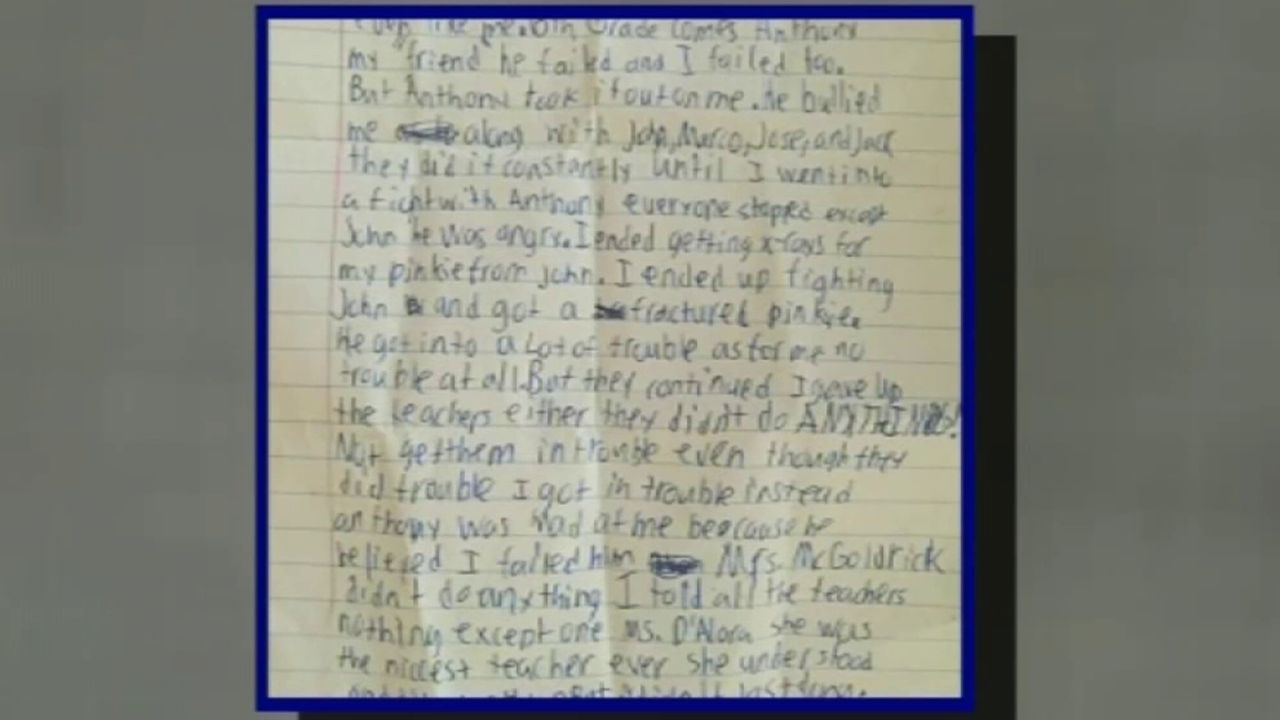 like me. 6th Grade comes Anthony
my "friend" he failed and I failed too.
But Anthony took it out on me. he bullied
me along with John, Marco, Jose, and Jack
they did it constantly until I went into
a fight with Anthony everyone stopped except
John he was angry. I ended getting x-rays for
my pinkie from John. I ended up fighting
John and got a fractured pinkie.
He got into a Lot of trouble as for me no
trouble at all. But they continued I gave up
the teachers either they didn't do ANYTHING!
Not get them in trouble even though they
did trouble I got in trouble instead
anthony was mad at me because he
believed I failed him Mrs. McGoldrick
didn't do anything I told all the teachers
nothing except one ms. D'Alora she was
the nicest teacher ever she understood
didn't last long.